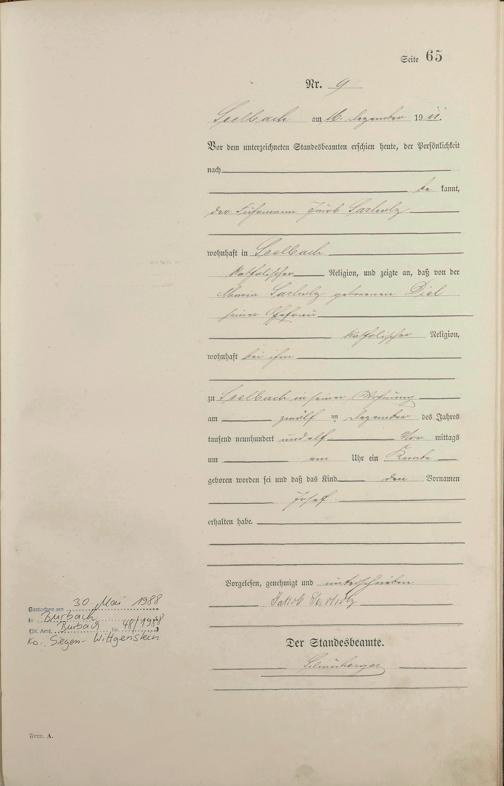 Seite 65
Nr. 9
Seelbach am 16 Dezember 1911.
Vor dem unterzeichneten Standesbeamten erschien heute, der Persönlichkeit
nach
be kannt,
der Jakob
wohnhaft in Seelbach
katholischer Religion, und zeigte an, daß von der
geborenen Diel
seiner Ehefrau
katholischer Religion,
wohnhaft bei ihm
zu Seelbach in seiner Wohnung
am zwölf ten Dezember des Jahres
tausend neunhundert und elf Vor mittags
um ein Uhr ein Knabe
geboren worden sei und daß das Kind den Vornamen
Josef
erhalten habe.
Vorgelesen, genehmigt und unterschrieben
Jakob
Der Standesbeamte.
Gestorben am 30 Mai 1988
in Burbach
Burbach Nr. 48/1988
Kr. Siegen-Wittgenstein
Form. A.